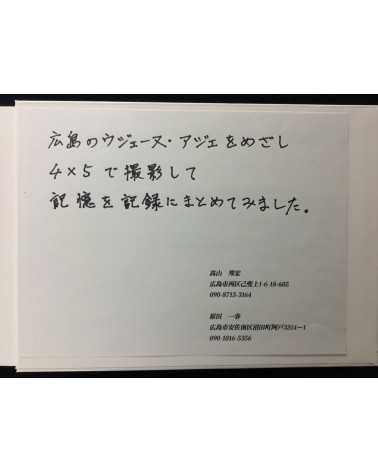 広島のウジェーヌ・アジェをめざし
4×5で撮影して
記憶を記録にまとめてみました。
高山
広島市西区己斐上1-6-18-605
090-8713-3164
原田 一春
広島市安佐南区沼田町阿戸3214-1
090-1016-5356